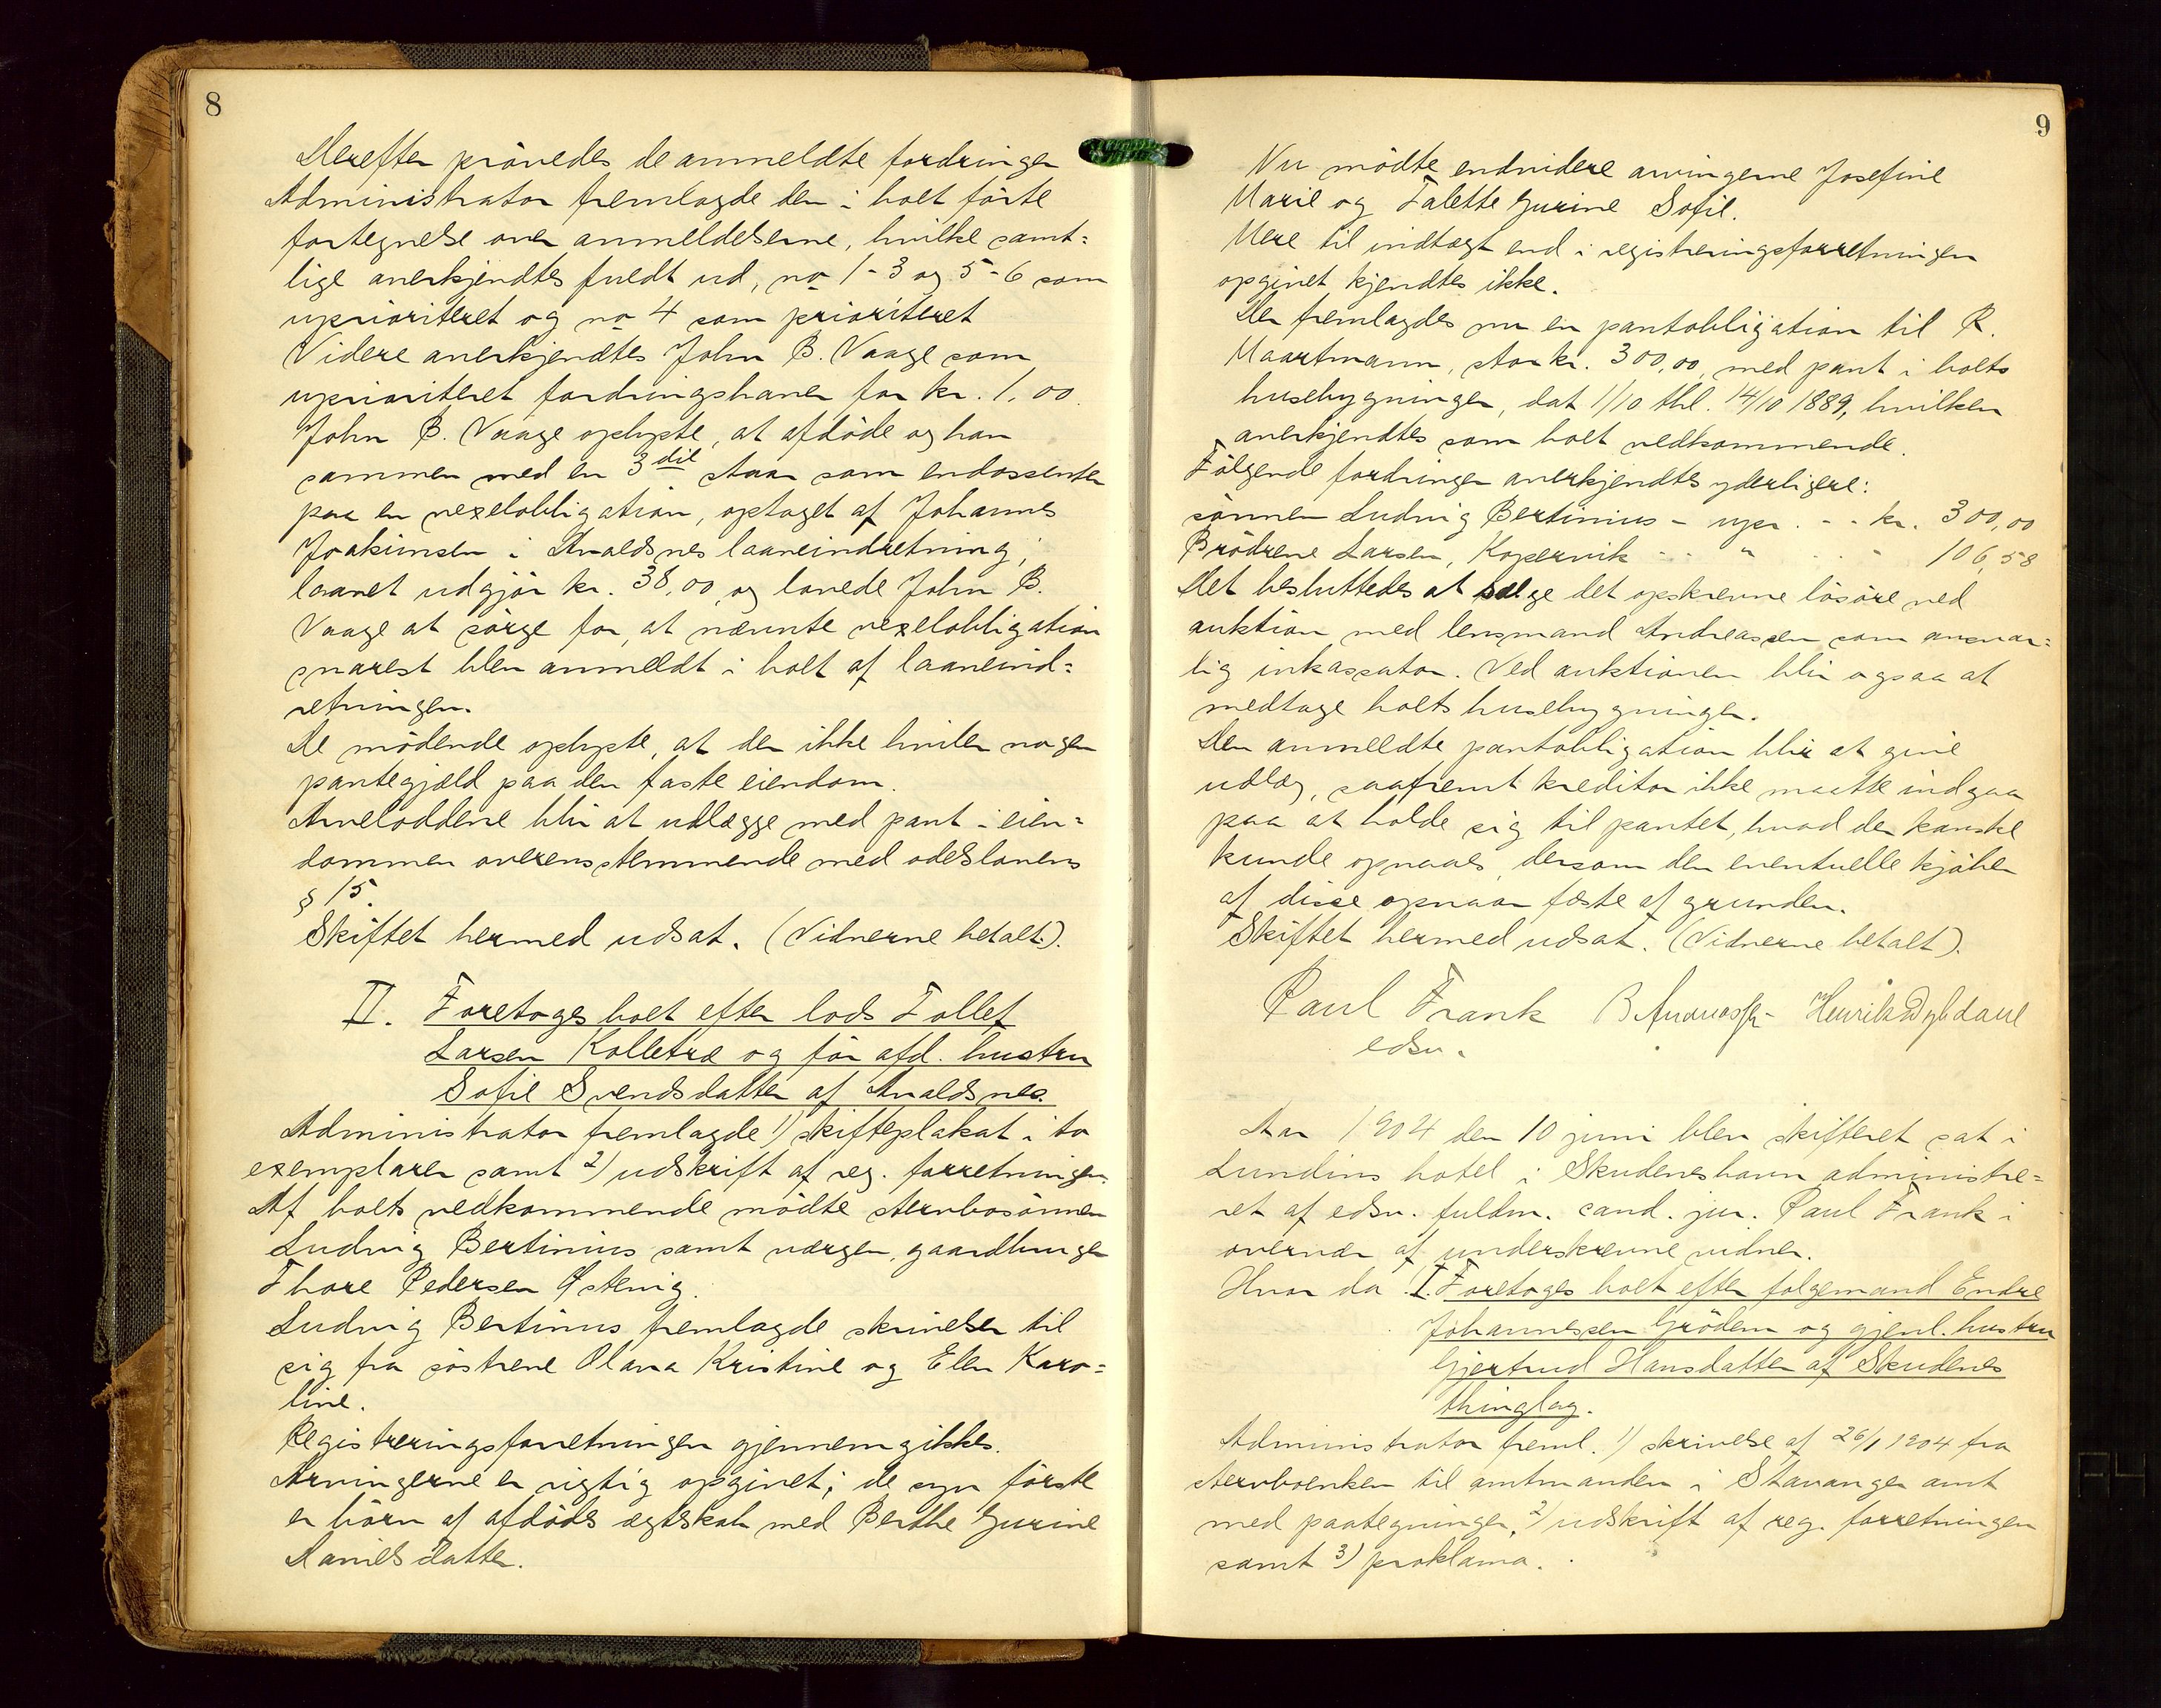 8
Derefter prövedes de anmeldte fordringer
Administrator fremlagde den i boet förte
fortegnelse over anmeldelserne, hvilke samt=
lige anerkjendtes fuldt ud, no 1-3 og 5-6 som
uprioriteret og no 4 som prioriteret
Videre anerkjendtes John B. Vaage som
uprioriteret fordringshaver for kr. 1,00.
John B. Vaage oplyste, at afdöde og han
sammen med en 3die staar som endossenter
paa en vexelobligation, optaget af Johannes
Joakimsen i Avaldsnes laaneindretning;
laanet udgjör kr. 38,00 og lovede John B.
Vaage at sörge for, at nævnte vexelobligation
snarest blev anmeldt i boet af laaneind=
retningen.
De mödende oplyste, at der ikke hviler nogen
pantegjæld paa den faste eiendom.
Arveloddene blir at udlægge med pant i eien=
dommen overensstemmende med odelslovens
§ 15.
Skiftet hermed udsat. (Vidnerne betalt).
II. Foretoges boet efter lods Tollef
Larsen Kolletræ og för afd. hustru
Sofie Svendsdatter af Avaldsnes.
Administrator fremlagde 1) skifteplakat i to
exemplarer samt 2) udskrift af reg. forretningen.
Af boets vedkommende mödte stervbosönnen
Ludvig Bertinius samt værgen, gaardbruger
Thore Pedersen Östevig.
Ludvig Bertinius fremlagde skrivelser til
sig fra söstrene Olava Kristine og Elen Karo=
line.
Registreringsforretningen gjennemgikkes.
Arvingerne er rigtig opgivet; de syv förste
er börn af afdödes ægteskab med Berthe Gurine
Danielsdatter.
9
Nu mödte endvidere arvingerne Josefine
Marie og Talette Gurine Sofie.
Mere til indtægt end i registreringsforretningen
opgivet kjendtes ikke.
Der fremlagdes nu en pantobligation til R.
Maartmann, stor kr. 300,00, med pant i boets
husebygninger, dat 1/10 thl. 14/10 1889, hvilken
anerkjendtes som boet vedkommende.
Fölgende fordringer anerkjendtes yderligere:
sönnen Ludvig Bertinius - upr. - - kr. 300,00
Brödrene Larsen, Kopervik - - " - - - 106,58
Det besluttedes at sælge det opskrevne lösöre ved
auktion med lensmand Andreassen som ansvar=
lig inkassator. Ved auktionen blir ogsaa at
medtage boets husebygninger.
Den anmeldte pantobligation blir at give
udlæg, saafremt kreditor ikke maatte indgaa
paa at holde sig til pantet, hvad der kanske
kunde opnaaes, dersom den eventuelle kjöber
af disse opnaar fæste af grunden.
Skiftet hermed udsat. (Vidnerne betalt).
Paul Frank B Andreassen Henrik Dybdahl
edsv.
Aar 1904 den 10 juni blev skifteret sat i
Lundins hotel i Skudeneshavn administre=
ret af edsv. fuldm. cand. jur. Paul Frank i
overvær af underskrevne vidner.
Hvor da I. Foretoges boet efter folgemand Endre
Johannessen Grödem og gjenl. hustru
Gjertrud Hansdatter af Skudenes
thinglag.
Administrator freml. 1) skrivelse af 26/1 1904 fra
stervboenken til amtmanden i Stavanger amt
med paategninger, 2) udskrift af reg. forretningen
samt 3) proklama.